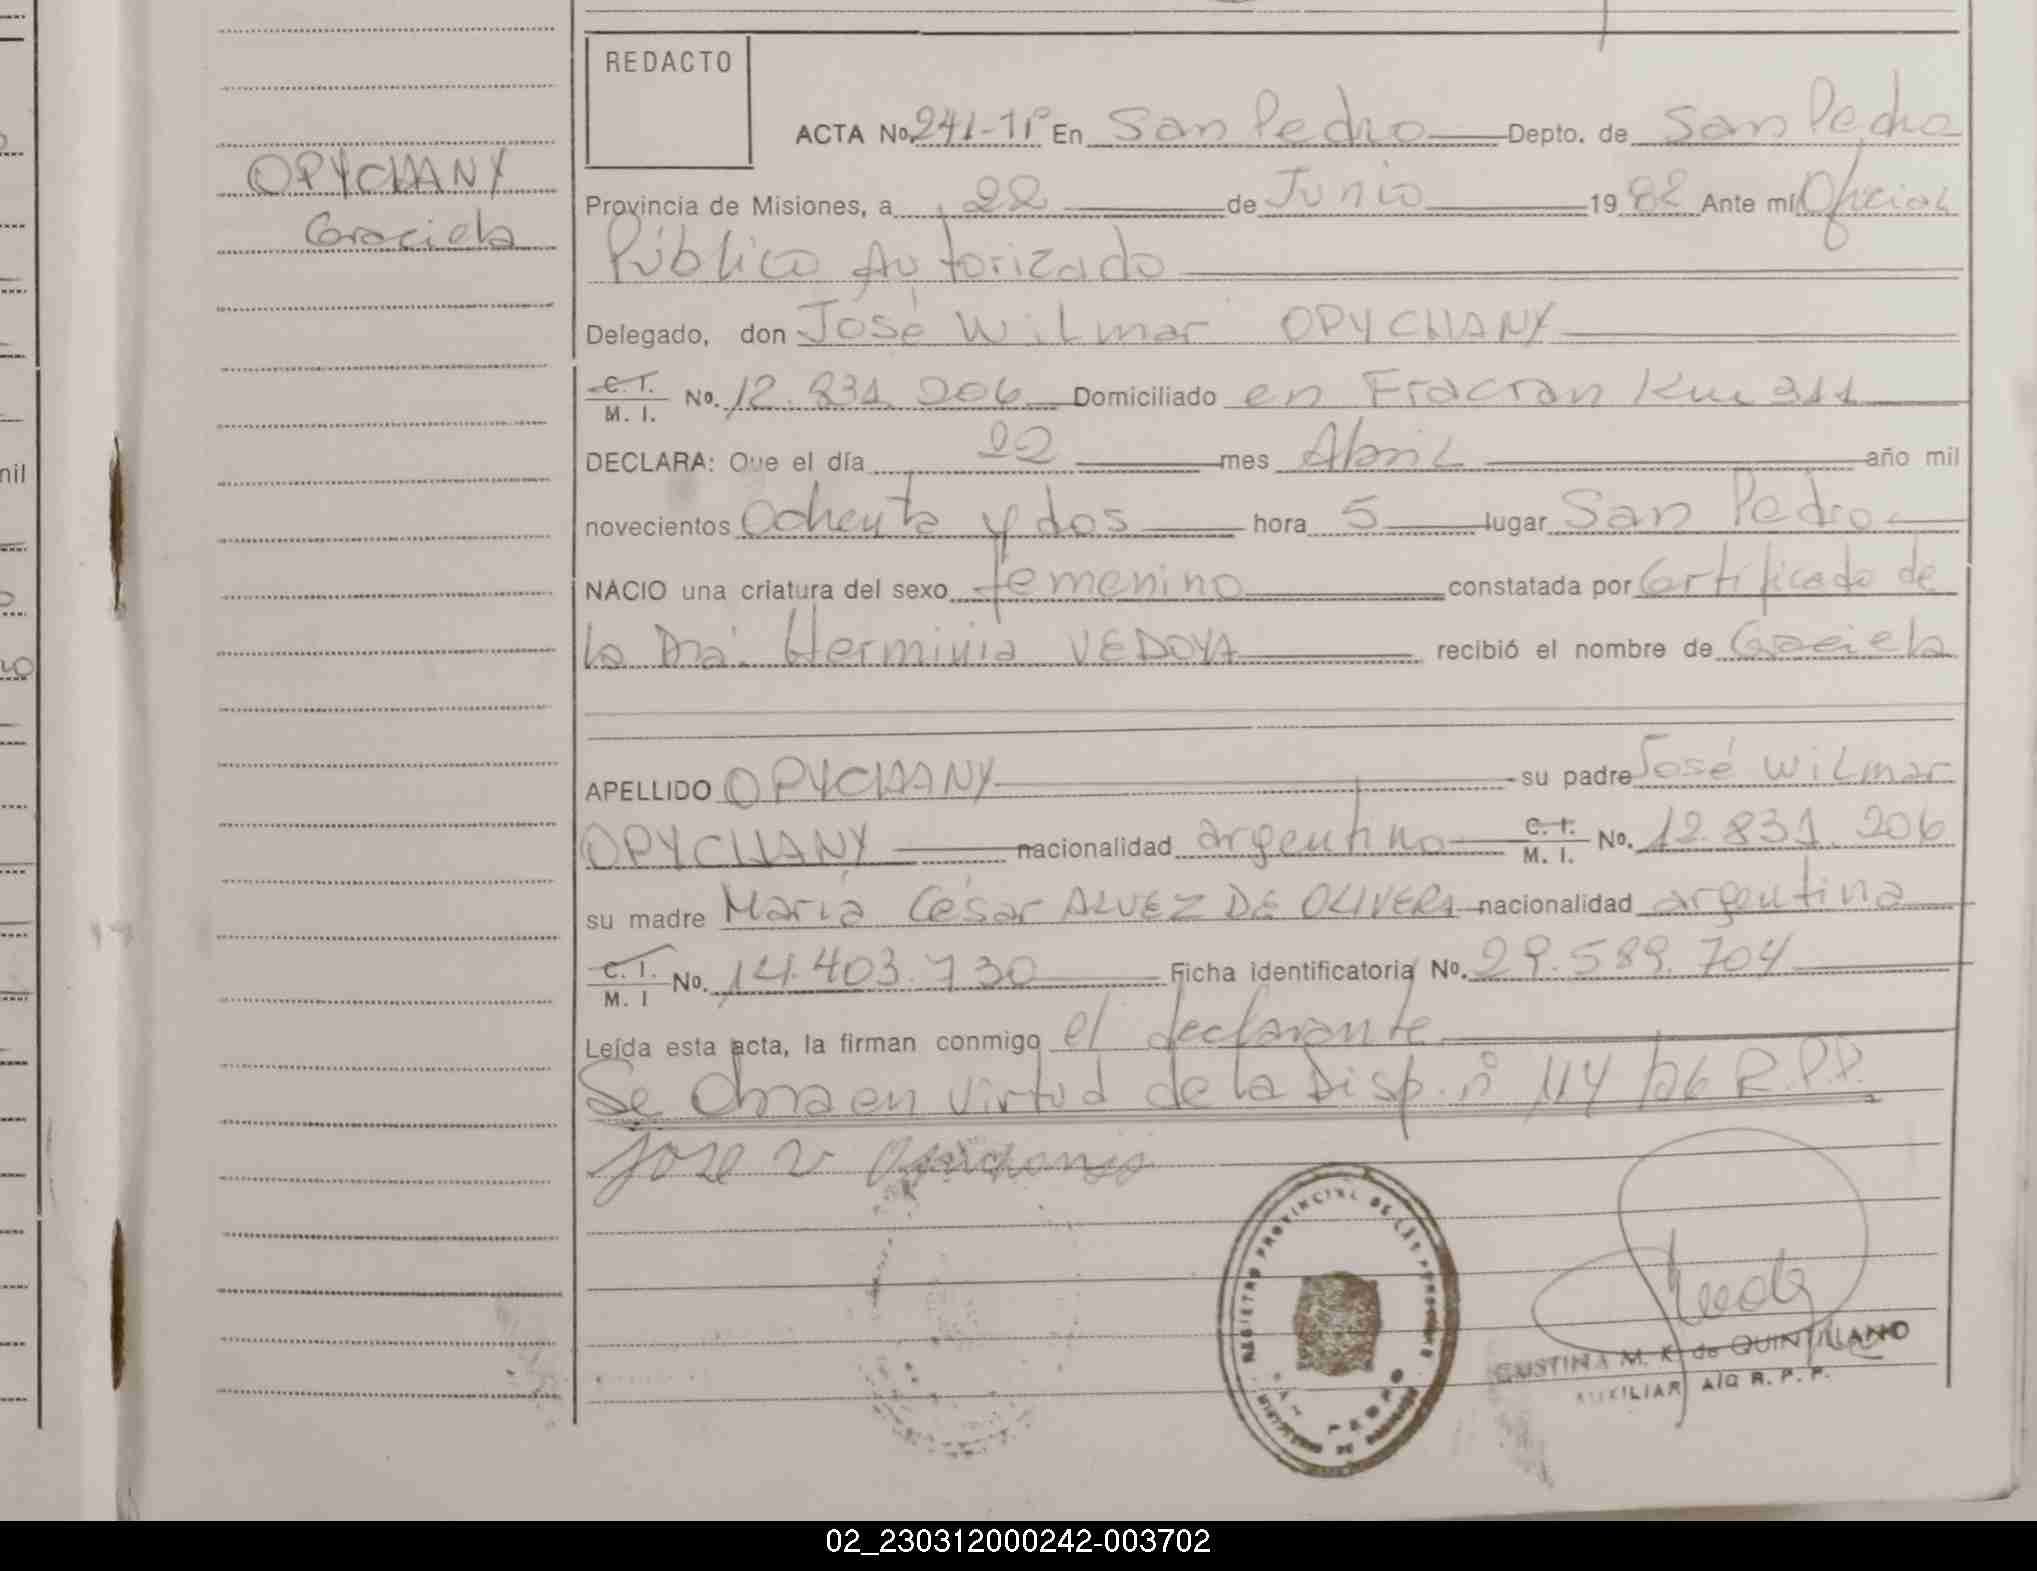 REDACTO
ACTA No. 241-1P En San Pedro Depto. de San Pedro
OPYCHANY
Graciela
Provincia de Misiones, a 22 de Junio 1982 Ante mí Oficial
Público Autorizado
Delegado, don José Wilmar OPYCHANY
C. I. M. I. No. 12.831.206 Domiciliado en Fracran Km 311
DECLARA: Que el día 22 mes Abril año mil
novecientos Ochenta y dos hora 5 lugar San Pedro
NACIO una criatura del sexo femenino constatada por Certificado de
la Dra. Herminia VEDOYA recibió el nombre de Graciela
APELLIDO OPYCHANY su padre José Wilmar
OPYCHANY nacionalidad argentino C. I. M. I. No. 12.831.206
su madre María César ALVEZ DE OLIVERA nacionalidad argentina
C. I. M. I No. 14.403.730 Ficha identificatoria No. 29.589.704
Leída esta acta, la firman conmigo el declarante
Se en virtud de la Disp. nº 114/76 R.P.P.
Jose W
REGISTRO PROVINCIAL DE LAS PERSONAS
SAN PEDRO
M. K. de QUINTILLANO
AUXILIAR A/C R. P. P.
nil
02_230312000242-003702